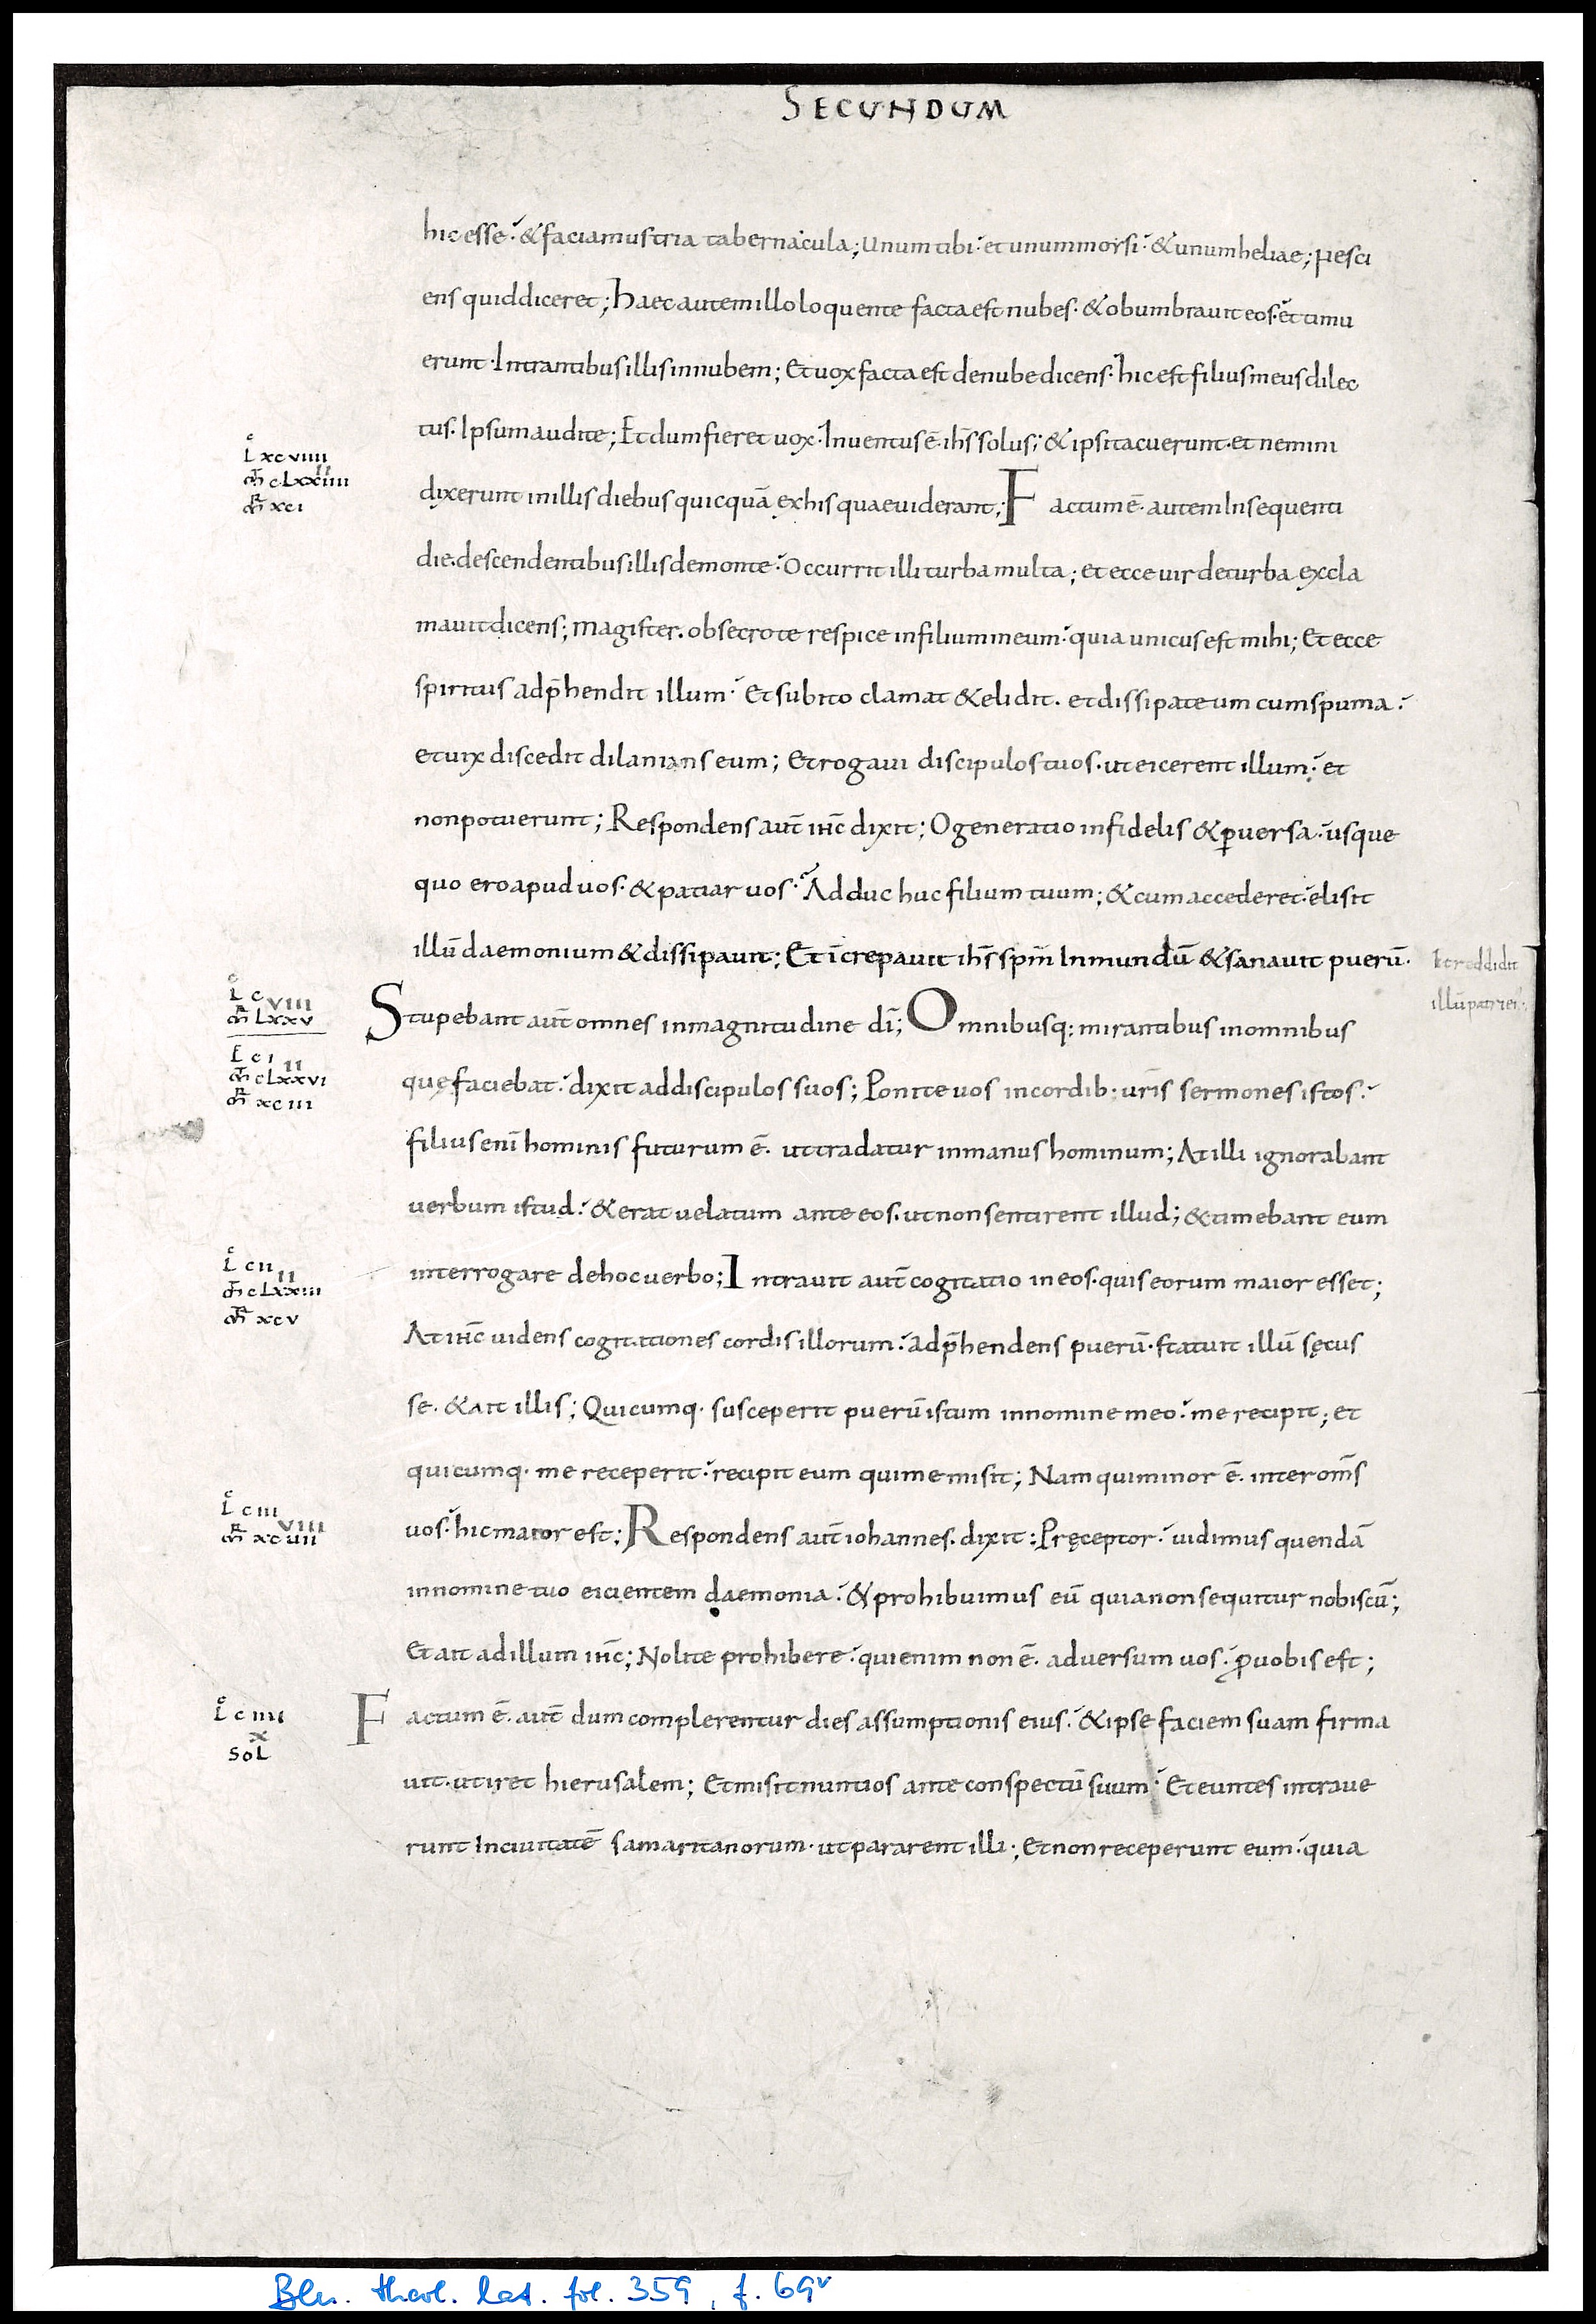 SECUNDUM
hic esse·́ & faciamus tria tabernacula; Unum tibi·́ et unum morsi·́ & unum heliae; Nesci
ens quid diceret; Haec autem illo loquente facta est nubes· & obumbravit eos·́ et timu
erunt· Intrantibus illis in nubem; Et vox facta est de nube dicens·́ hic est filius meus dilec
tus· Ipsum audite; Et dum fieret vox· Inventus ē· ihs̄ solus; & ipsi tacuerunt· et nemini
L̊ xcviiii
m̄ cLxxiiii
II
m̄ʀ xci
dixerunt in illis diebus quicquā ex his quae viderant; Factum ē· autem In sequenti
die· descendentibus illis de monte·́ Occurrit illi turba multa; et ecce vir de turba excla
mavit dicens; Magister· obsecro te respice in filium meum·́ quia unicus est mihi; Et ecce
spiritus adp̄hendit illum·́ Et subito clamat & elidit· et dissipat eum cum spuma·́
et vix discedit dilanians eum; Et rogavi discipulos tuos· ut eicerent illum·́ et
non potuerunt; Respondens aut̄ ihc̄ dixit; O generatio infidelis & ꝑversa·́ usque
quo ero apud vos· & patiar vos·́ Adduc huc filium tuum; & cum accederet·́ elisit
illū daemonium & dissipavit; Et īcrepavit ihs̄ spm̄ Inmundū & sanavit puerū·
et reddidit
illū patri ei;
L̊ c
VIII
m̄ʀ Lxxv
Stupebant aut̄ omnes in magnitudine dī; Omnibusq; mirantibus in omnibus
L ci
II
m̄ cLxxvi
m̄ʀ xciii
quę faciebat·́ dixit ad discipulos suos; Ponite vos in cordib; vrīs sermones istos·́
filius enī hominis futurum ē· ut tradatur in manus hominum; At illi ignorabant
verbum istud·́ & erat velatum ante eos· ut non sentirent illud; & timebant eum
L̊ cii
II
m̄ cLxxiii
m̄ʀ xcv
interrogare de hoc verbo; Intravit aut̄ cogitatio in eos· quis eorum maior esset;
At ihc̄ videns cogitationes cordis illorum·́ adp̄hendens puerū· statuit illū sęcus
se· & ait illis; Quicumq· susceperit puerū istum in nomine meo·́ me recipit; et
quicumq· me receperit·́ recipit eum qui me misit; Nam qui minor ē· inter om̄s
L̊ ciii
VIII
m̄ʀ xcvii
vos·́ hic maior est; Respondens aut̄ iohannes· dixit: Pręceptor·́ vidimus quendā
in nomine tuo eicientem daemonia·́ & prohibuimus eū quia non sequitur nobiscū;
Et ait ad illum ihc̄; Nolite prohibere·́ qui enim non ē· adversum vos·́ ꝓ vobis est;
L̊ ciiii
x
SOL
Factum ē· aut̄ dum complerentur dies assumptionis eius·́ & ipse faciem suam firma
vit· ut iret hierusalem; Et misit nuntios ante conspectū suum·́ Et euntes intrave
runt In civitatē samaritanorum· ut pararent illi; Et non receperunt eum·́ quia
Bln. theol. lat. fol. 359, f. 69v